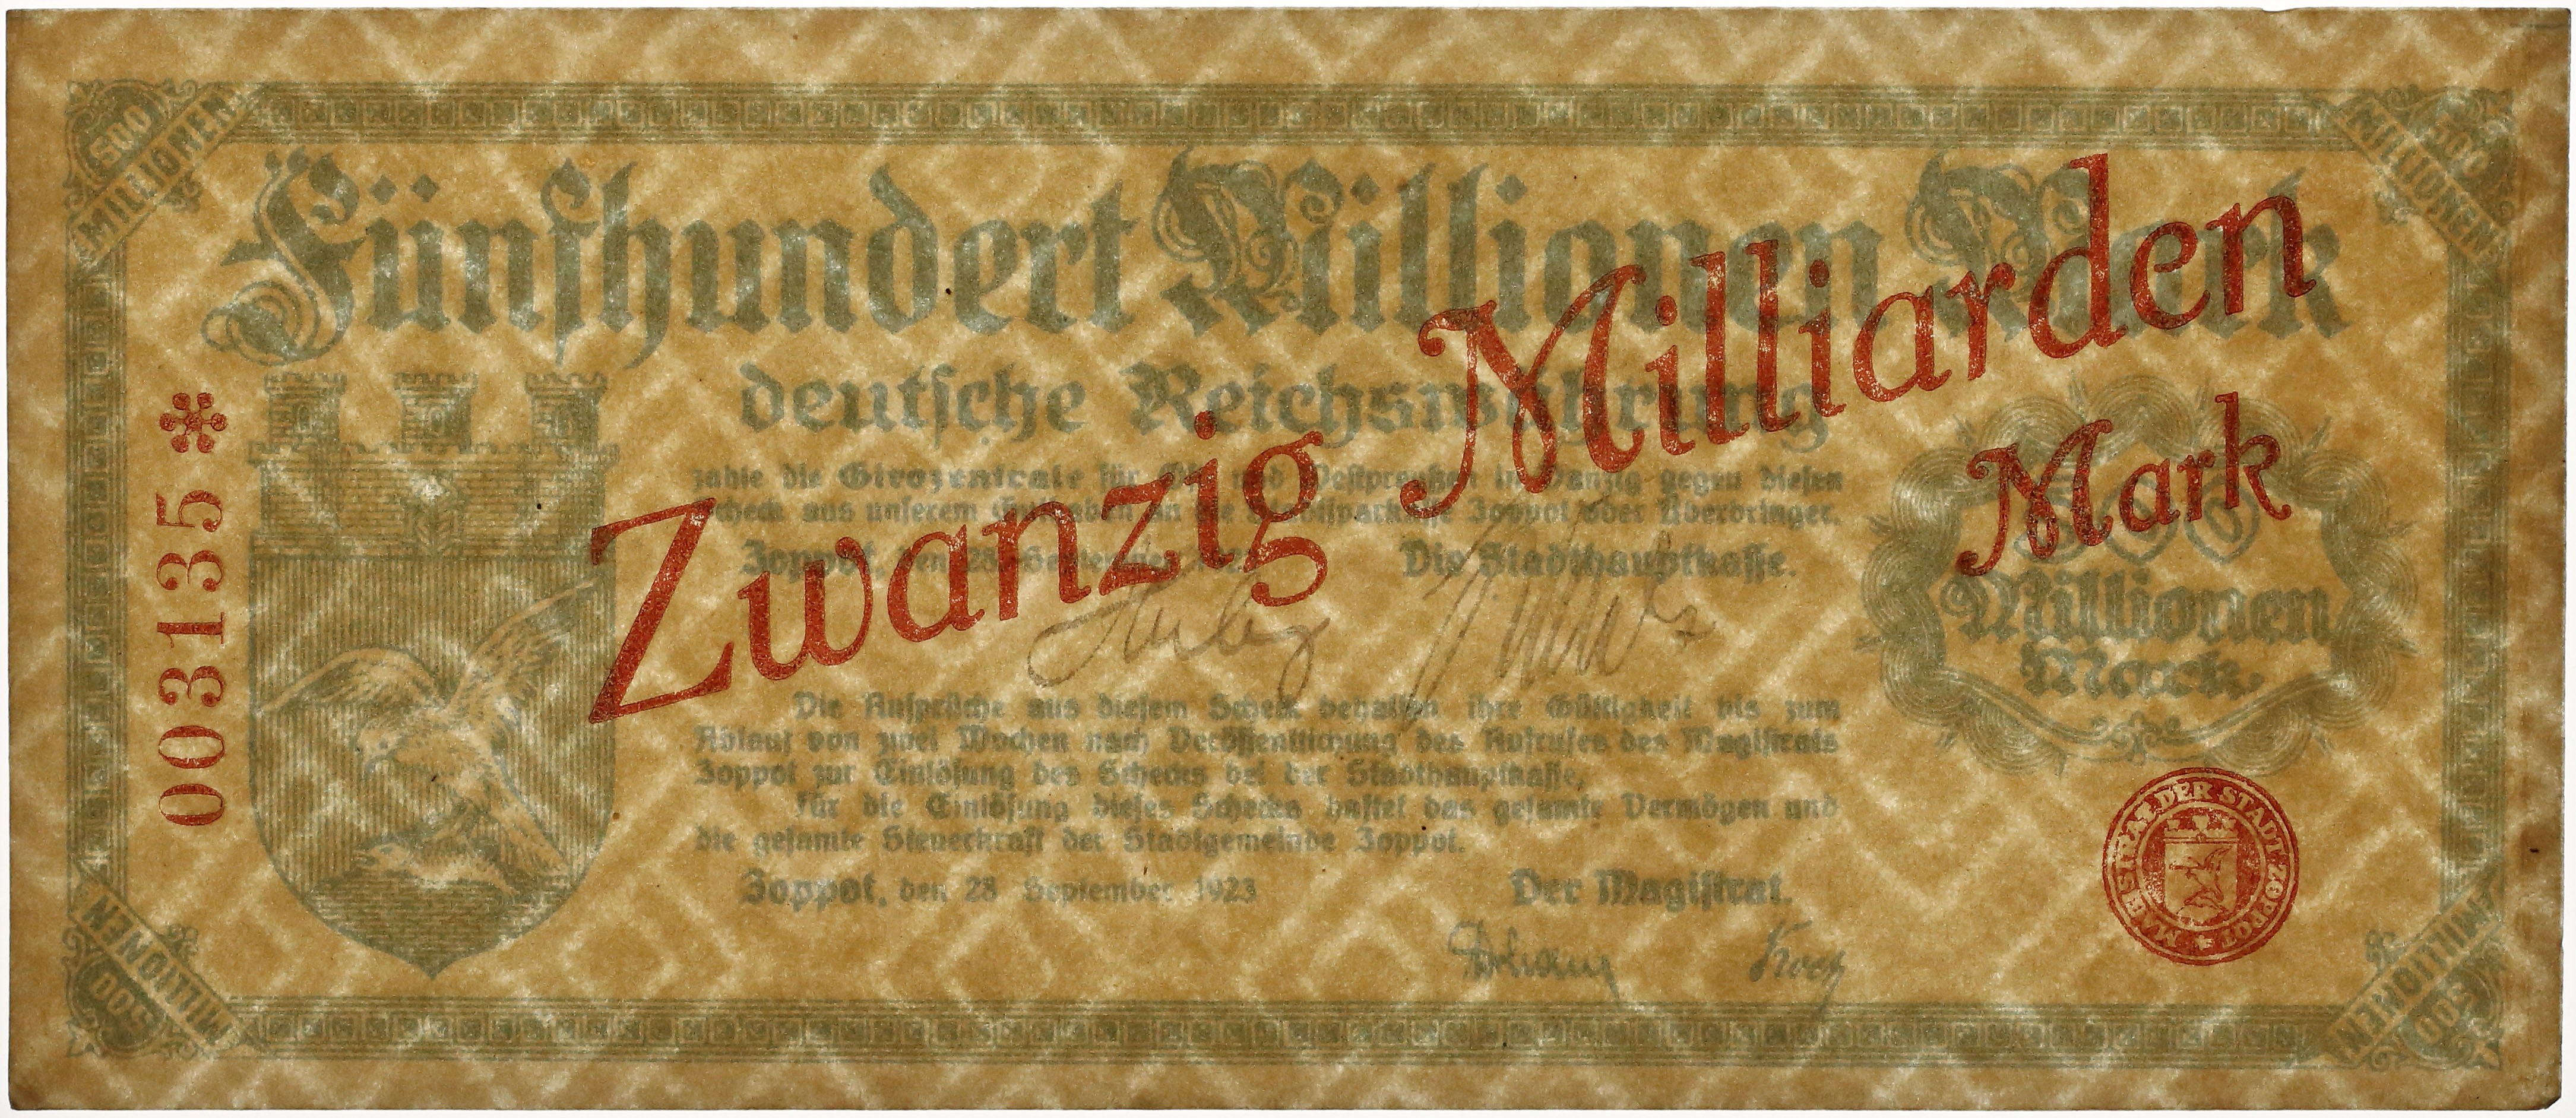 500
MILLIONEN
500
MILLIONEN
Fünfhundert Millionen Mark
deutsche Reichswährung
Zwanzig Milliarden
Mark
zahle die Girozentrale für Ost und Westpreußen in Danzig gegen diesen
Scheck aus unserem Guthaben an die Stadtsparkasse Zoppot oder Überbringer.
Zoppot, den 28. September 1923
Die Stadthauptkasse.
003135 *
500
Millionen
Mark
Die Ansprüche aus diesem Scheck behalten ihre Gültigkeit bis zum
Ablauf von zwei Wochen nach Veröffentlichung des Aufrufes des Magistrats
Zoppot zur Einlösung des Schecks bei der Stadthauptkasse,
Für die Einlösung dieses Schecks haftet das gesamte Vermögen und
die gesamte Steuerkraft der Stadtgemeinde Zoppot.
Zoppot, den 28 September 1923
Der Magistrat.
MAGISTRAT DER STADT ZOPPOT
500
MILLIONEN
500
MILLIONEN